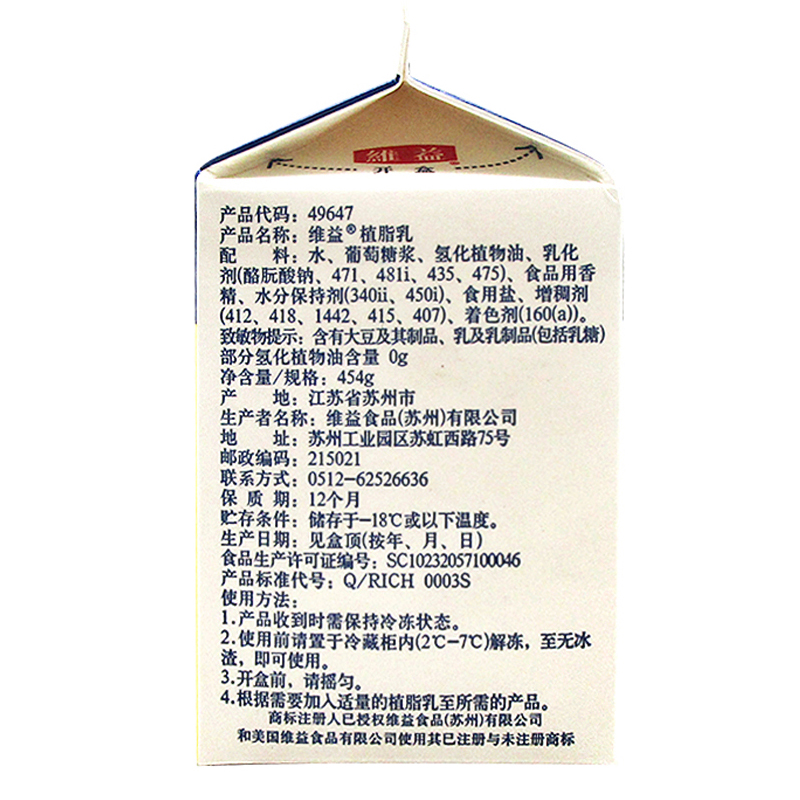 維益
开 盒
产品代码：49647
产品名称：维益®植脂乳
配　　料：水、葡萄糖浆、氢化植物油、乳化
剂(酪朊酸钠、471、481i、435、475)、食品用香
精、水分保持剂(340ii、450i)、食用盐、增稠剂
(412、418、1442、415、407)、着色剂(160(a))。
致敏物提示：含有大豆及其制品、乳及乳制品(包括乳糖)
部分氢化植物油含量 0g
净含量/规格：454g
产　　地：江苏省苏州市
生产者名称：维益食品(苏州)有限公司
地　　址：苏州工业园区苏虹西路75号
邮政编码：215021
联系方式：0512-62526636
保 质 期：12个月
贮存条件：储存于-18℃或以下温度。
生产日期：见盒顶(按年、月、日)
食品生产许可证编号：SC10232057100046
产品标准代号：Q/RICH 0003S
使用方法：
1.产品收到时需保持冷冻状态。
2.使用前请置于冷藏柜内(2℃-7℃)解冻，至无冰
渣，即可使用。
3.开盒前，请摇匀。
4.根据需要加入适量的植脂乳至所需的产品。
商标注册人已授权维益食品(苏州)有限公司
和美国维益食品有限公司使用其已注册与未注册商标